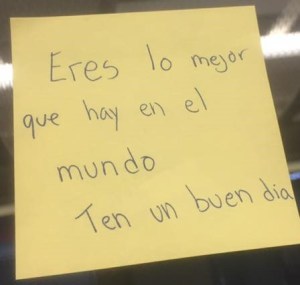 Eres lo mejor
que hay en el
mundo
Ten un buen dia